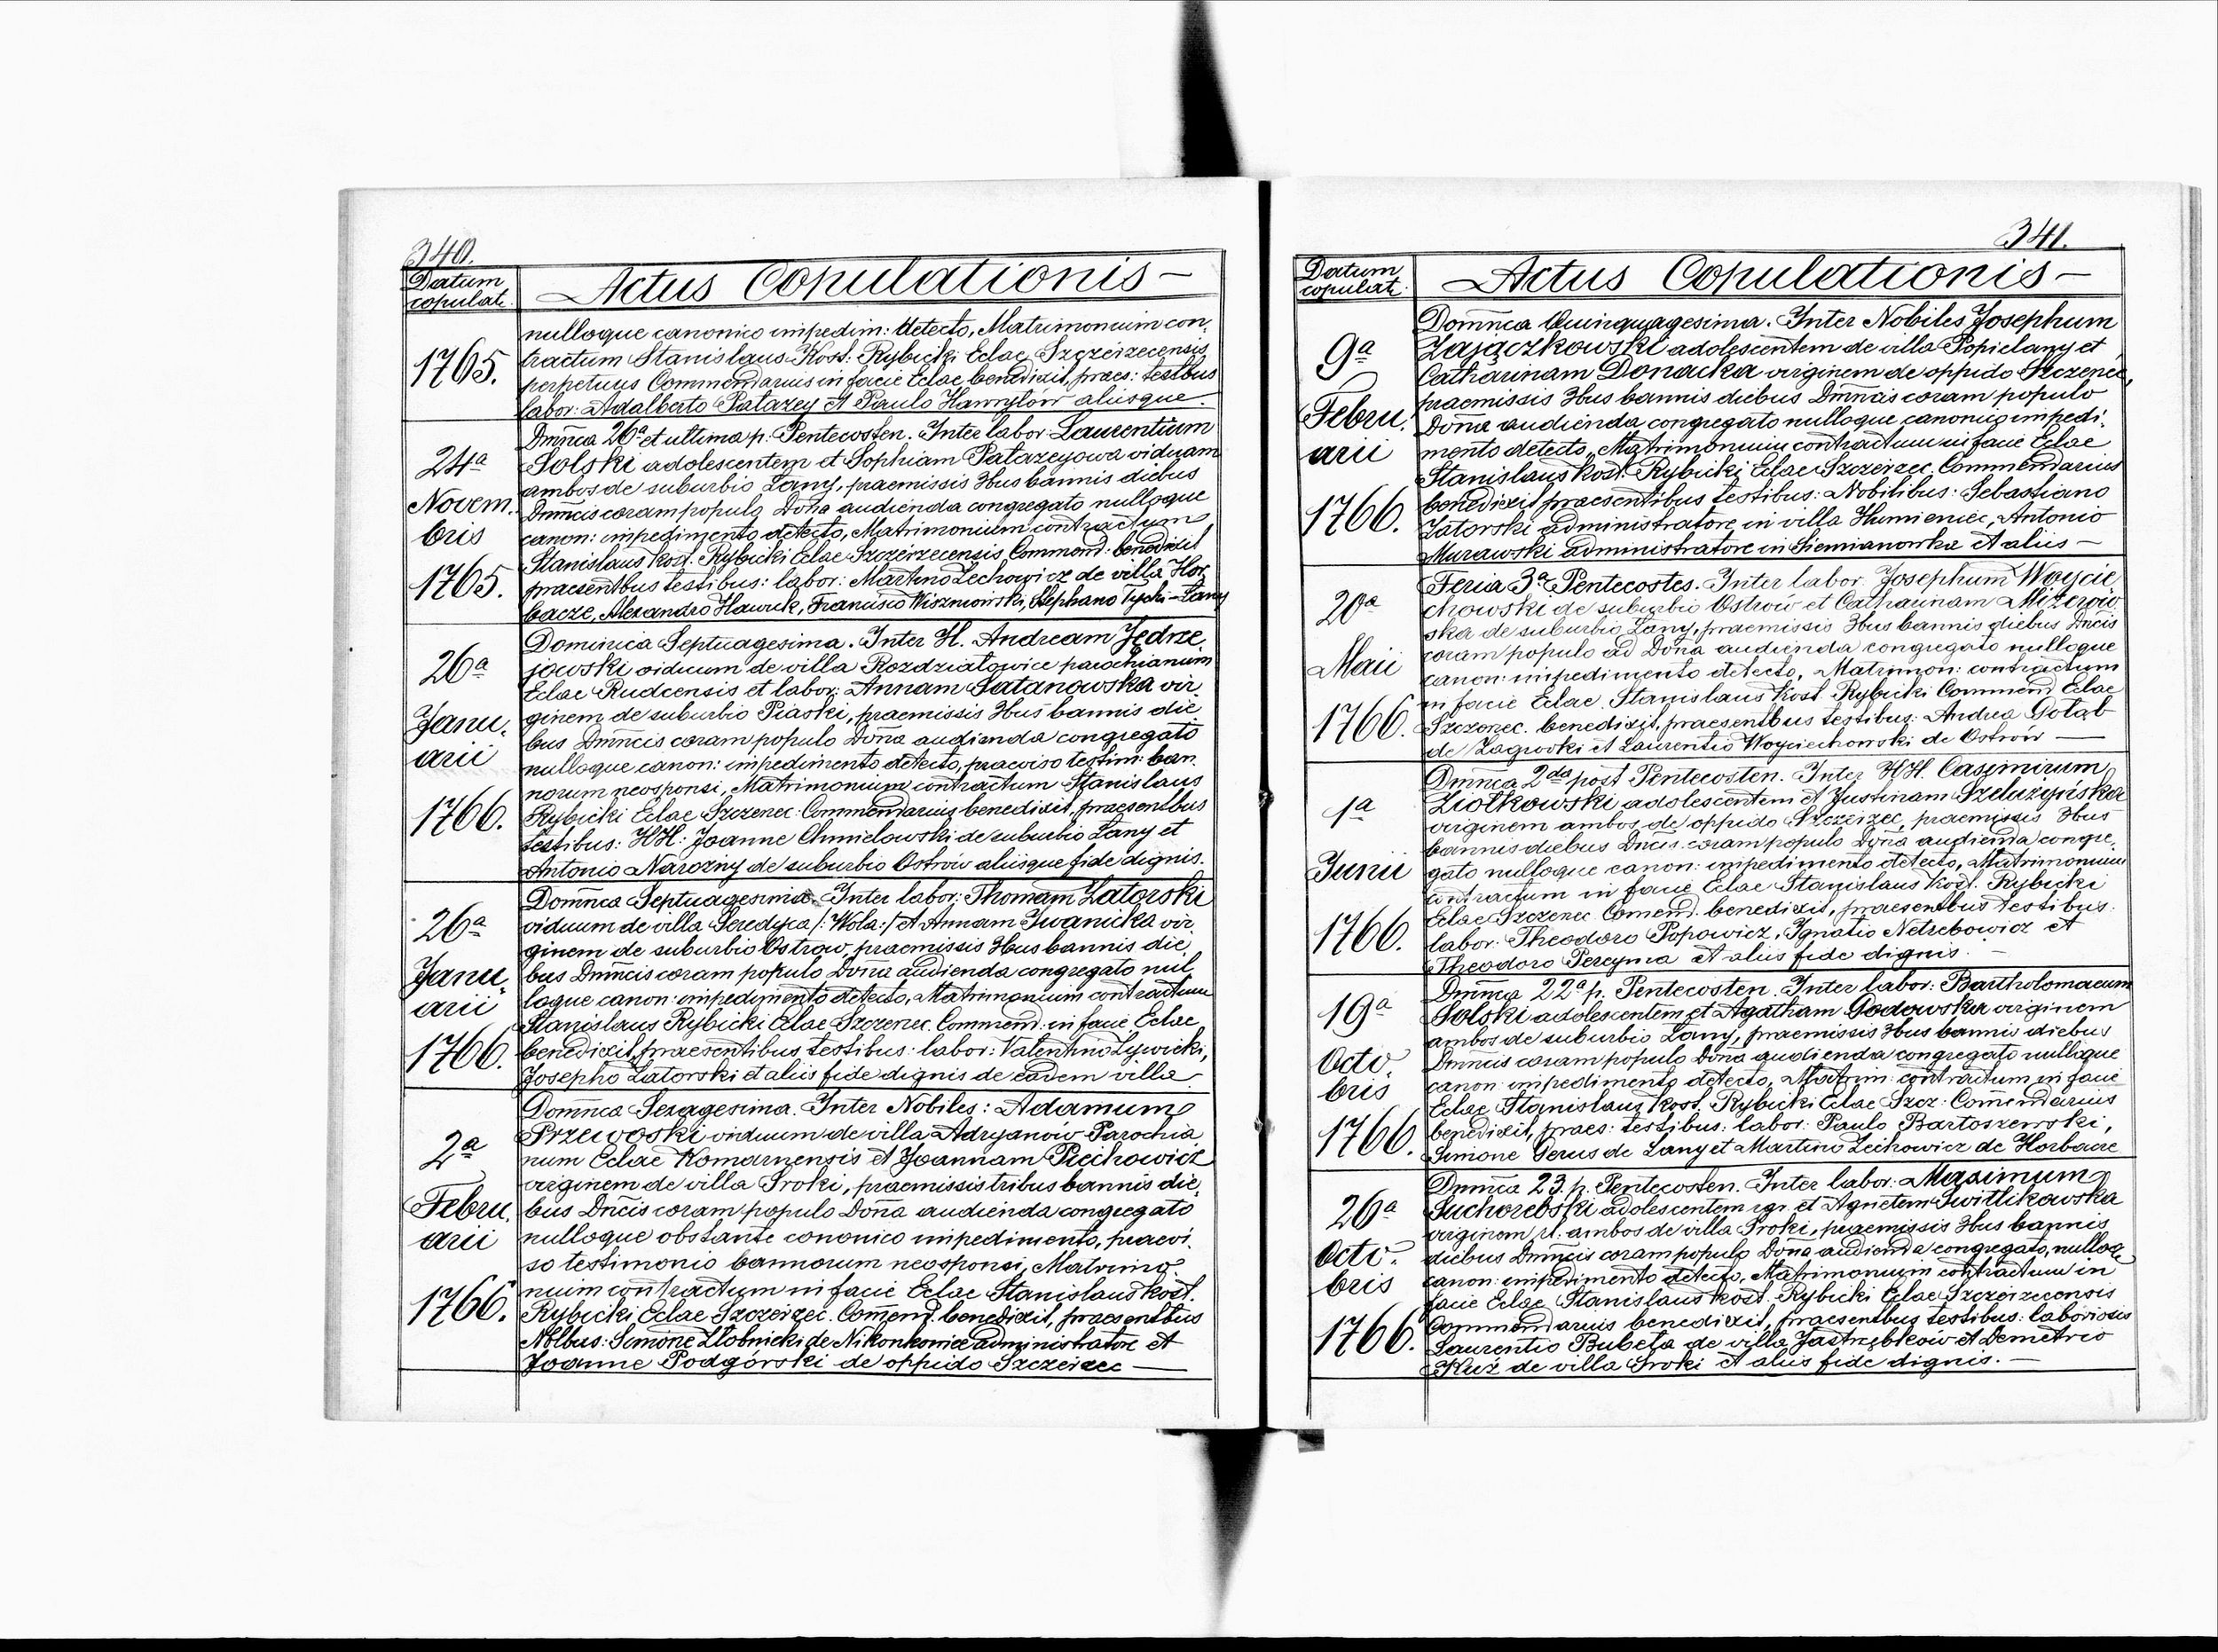 340.
Datum copulat:
Actus Copulationis —
1765.
nulloque canonico impedim: detecto, Matrimonium con-
tractum Stanislaus Kost: Rybicki Eclae Szczeirzecensis
perpetuus Commendarius in facie Eclae benedixit, praes: testbus
labor: Adalberto Patazey et Paulo Hawryłow aliisque.
24a Novem. bris 1765.
Dmnica 26a et ultima p. Pentecosten. Inter labor: Laurentium
Solski adolescentem et Sophiam Patazeyowa viduam
ambos de suburbio Łany, praemissis 3bus bannis diebus
Dmncis coram populo Dona audienda congregato nulloque
canon: impedimento detecto, Matrimonium contractum
Stanislaus Kost. Rybicki Eclae Szczeirzecensis Commend: benedixit
praesentbus testibus: labor: Martino Lechowicz de villa Hor
bacze, Alexandro Hawruk, Francisco Wiszniowski, Stephano Tycki – Łany
26a Janu. arii 1766.
Dominica Septuagesima. Inter H. Andream Jędrze,
jowski viduum de villa Rozdziałowice parochianum
Eclae Rudcensis et labor: Annam Satanowska vir,
ginem de suburbio Piaski, praemissis 3bus bannis die
bus Dmncis coram populo Dona audienda congregato
nulloque canon: impedimento detecto, praeviso testim: ban,
norum neosponsi, Matrimonium contractum Stanislaus
Rybicki Eclae Szczerzec: Commendarius benedixit, praesentbus
testibus: HH: Joanne Chmielowski de suburbio Łany et
Antonio Narozny de suburbio Ostrów aliisque fide dignis.
26a Janu, arii 1766.
Domnca Septuagesima. Inter labor: Thomam Zatorski
viduum de villa Seredyca /: Wola:/ et Annam Iwanicka vir,
ginem de suburbio Ostrow, praemissis 3bus bannis die,
bus Dmncis coram populo Dona audienda congregato nul,
loque canon: impedimento detecto, Matrimonium contractum
Stanislaus Rybicki Eclae Szczerzec. Commend: in facie Eclae
benedixit, praesentibus testibus: labor: Valentino Lywicki,
Josepho Zatorski et aliis fide dignis de eadem villa
2a Febru. arii 1766.
Domnca Sexagesima. Inter Nobiles: Adamum
Przewoski viduum de villa Adryanów Parochia,
num Eclae Komarnensis et Joannam Piechowicz
virginem de villa Sroki, praemissis tribus bannis die,
bus Dncis coram populo Dona audienda congregato
nulloque obstante cononico impedimento, praevi,
so testimonio bannorum neosponsi, Matrimo,
nium contractum in facie Eclae Stanislaus Kost.
Rybicki Eclae Szczeirzec. Comend. benedixit, praesentbus
Nolbus: Simone Złobnicki de Nikonkowice administratore et
Joanne Podgórski de oppido Szczeirzec —
341.
Datum copulat:
Actus Copulationis —
9a Febru. arii 1766.
Domnca Quinquagesima. Inter Nobiles Josephum
Zajączkowski adolescentem de villa Popielany et
Catharinam Donacka virginem de oppido Szczerzec,
praemissis 3bus bannis diebus Dmncis coram populo
Dona audienda congregato nulloque canonico impedi,
mento detecto, Matrimonium contractum in facie Eclae
Stanislaus Kost: Rybicki Eclae Szczeirzec. Commendarius
benedixit, praesentibus testibus: Nobilibus: Sebastiano
Zatorski administratore in villa Humieniec, Antonio
Murawski administratore in Siemianowka et aliis —
20a Maii 1766.
Feria 3a Pentecostes. Inter labor. Josephum Woycie
chowski de suburbio Ostrow et Catharinam Mizerow,
ska de suburbio Łany, praemissis 3bus bannis diebus Dncis
coram populo ad Dona audienda congregato nulloque
canon: impedimento detecto, Matrimon: contractum
in facie Eclae. Stanislaus Kost. Rybicki Commend Eclae
Szczerzec. benedixit, praesentbus testibus: Andrea Gołąb
de Zagrodki et Laurentio Woyciechowski de Ostrów —
1a Junii 1766.
Dmnca 2da post Pentecosten. Inter HH. Casimirum
Ziołkowski adolescentem et Justinam Szeluzynska
virginem ambos de oppido Szczeirzec, praemissis 3bus
bannis diebus Dncis. coram populo Dona audienda congre,
gato nulloque canon: impedimento detecto, Matrimonium
contractum in facie Eclae Stanislaus Kost. Rybicki
Eclae Szczerzec Comend. benedixit, praesentbus testibus:
labor: Theodoro Popowicz, Ignatio Netrebowicz et
Theodoro Pereyma et aliis fide dignis. —
19a Octo. bris 1766.
Dmnca 22a p. Pentecosten. Inter labor: Bartholomaeum
Solski adolescentem et Agatham Godowska virginem
ambos de suburbio Łany, praemissis 3bus bannis diebus
Dmncis coram populo Dona audienda congregato nulloque
canon: impedimento detecto, Matrim: contractum in facie
Eclae Stanislaus Kost. Rybicki Eclae Szcz: Comendarius
benedixit, praes: testibus: labor: Paulo Bartoszewski,
Simone Gerus de Łany et Martino Lechowicz de Horbacze
26a Octo. bris 1766.
Dmnca 23. p. Pentecosten. Inter labor: Maximum
Suchorebski adolescentem rgr. et Agnetem Switlikowska
virginem rl: ambos de villa Sroki, praemissis 3bus bannis
diebus Dmncis coram populo Dona audienda congregato, nulloq
canon: impedimento detecto, Matrimonium contractum in
facie Eclae Stanislaus Kost. Rybicki Eclae Szczeirzecensis
Commendarius benedixit, praesentbus testibus: laboriosis
Laurentio Bubeła de villa Jastrzębków et Demetrio
Kuź de villa Sroki et aliis fide dignis. —